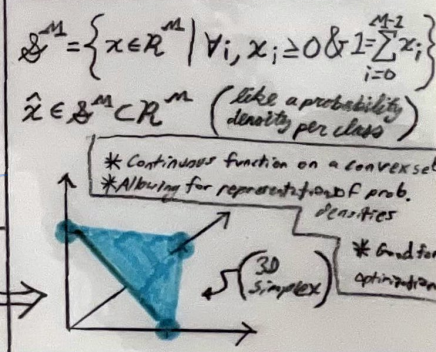 𝒮^M = {x ∈ ℝ^M | ∀i, x_i ≥ 0 & 1 = Σ_{i=0}^{M-1} x_i}
x̂ ∈ 𝒮^M ⊂ ℝ^M (like a probability
density per class)
* Continuous function on a convex set
* Allowing for representation of prob.
densities
* Good for
optimization
(3D
Simplex)